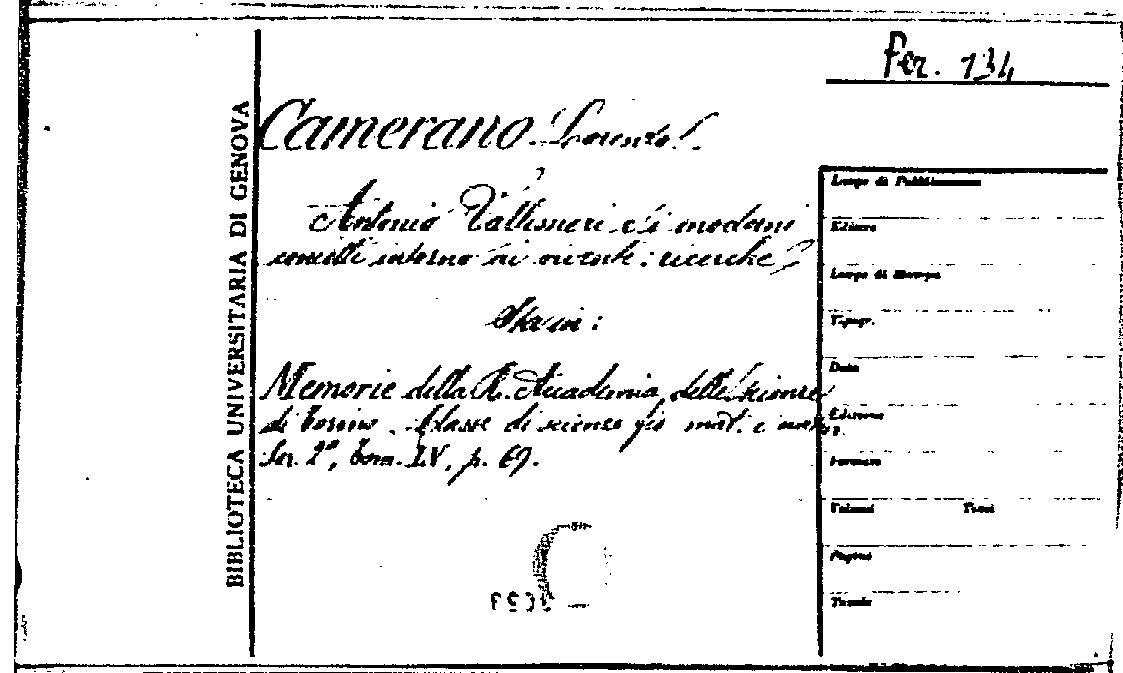 Per. 134
BIBLIOTECA UNIVERSITARIA DI GENOVA
Camerano Lorenzo
Antonio Vallisneri e i moderni
concetti intorno ai viventi: ricerche
Sta in:
Memorie della R. Accademia delle Scienze
di Torino. Classe di scienze fis. mat. e nat.
Ser. 2ª, Tom. LV, p. 69.
Luogo di Pubblicazione
Editore
Luogo di Stampa
Tipogr.
Data
Edizione
Formato
Volumi Tomi
Pagine
Tavole